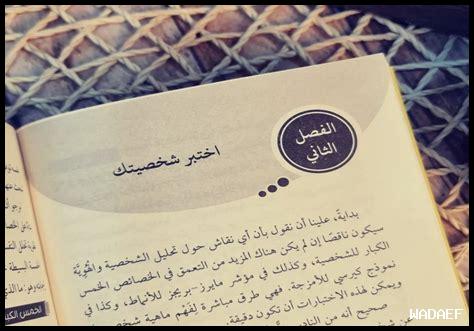 الفصل
الثاني
اختبر شخصيتك
بدايةً، علينا أن نقول بأن أي نقاش حول تحليل الشخصية والهُويَّة
سيكون ناقصًا إن لم يكن هناك المزيد من التعمق في الخصائص الخمس
الكبار للشخصية، وكذلك في مؤشر مايرز-بريجز للأنماط، وكذا في
نموذج كيرسي للأمزجة. فهي طرق مباشرة لِفَهْم ماهية شخصية
ويمكن لهذه الاختبارات أن تكون دقيقة.
صحيح أنه من
WADAEF